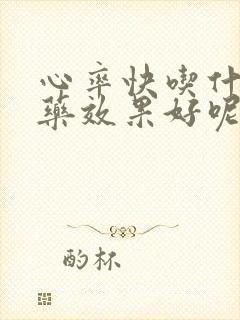 心率快喫什
藥效果好呢
酌杯